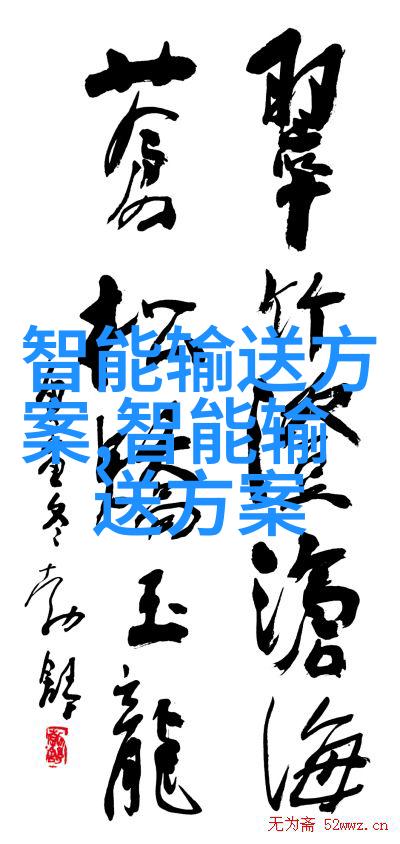 翠竹滄海
蒼松玉龍
智能输送方
案,智能输
送方案
无为斋 52wwz.cn